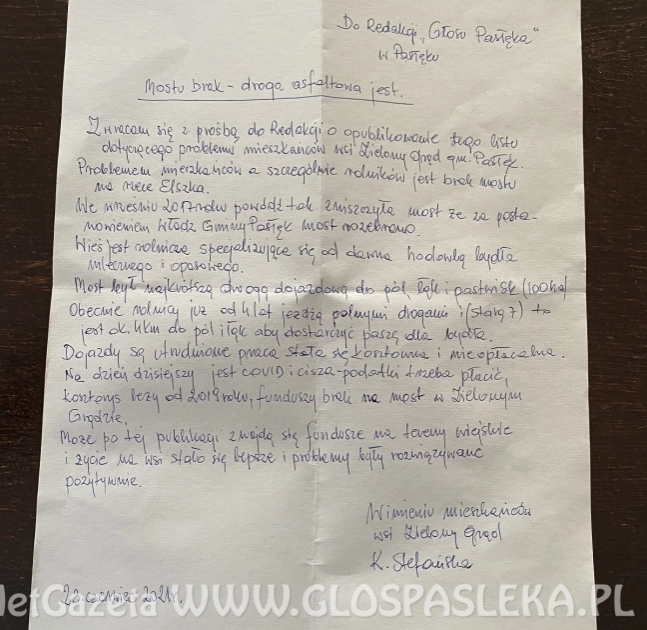 Do Redakcji „Głosu Pasłęka"
w Pasłęku
Mostu brak – droga asfaltowa jest.
Zwracam się z prośbą do Redakcji o opublikowanie tego listu
dotyczącego problemu mieszkańców wsi Zielony Grąd gm. Pasłęk.
Problemem mieszkańców a szczególnie rolników jest brak mostu
na rzece Elszka.
We wrześniu 2017 roku powódź tak zniszczyła most że za posta-
nowieniem Władz Gminy Pasłęk most rozebrano.
Wieś jest rolnicza specjalizujące się od dawna hodowlą bydła
mlecznego i opasowego.
Most był najkrótszą drogą dojazdową do pól, łąk i pastwisk (100ha)
Obecnie rolnicy już od 4 lat jeżdżą polnymi drogami i (starą 7) to
jest ok. 4km do pól i łąk aby dostarczyć paszę dla bydła.
Dojazdy są utrudnione praca stała się kosztowna i nieopłacalna.
Na dzień dzisiejszy jest COVID i cisza - podatki trzeba płacić,
kosztorys leży od 2019 roku, funduszy brak na most w Zielonym
Grądzie.
Może po tej publikacji znajdą się fundusze na tereny wiejskie
i życie na wsi stało się lepsze i problemy były rozwiązywane
pozytywnie.
W imieniu mieszkańców
wsi Zielony Grąd
K. Stefańska
czerwiec 2021r.
netGazeta WWW.GLOSPASLEKA.PL